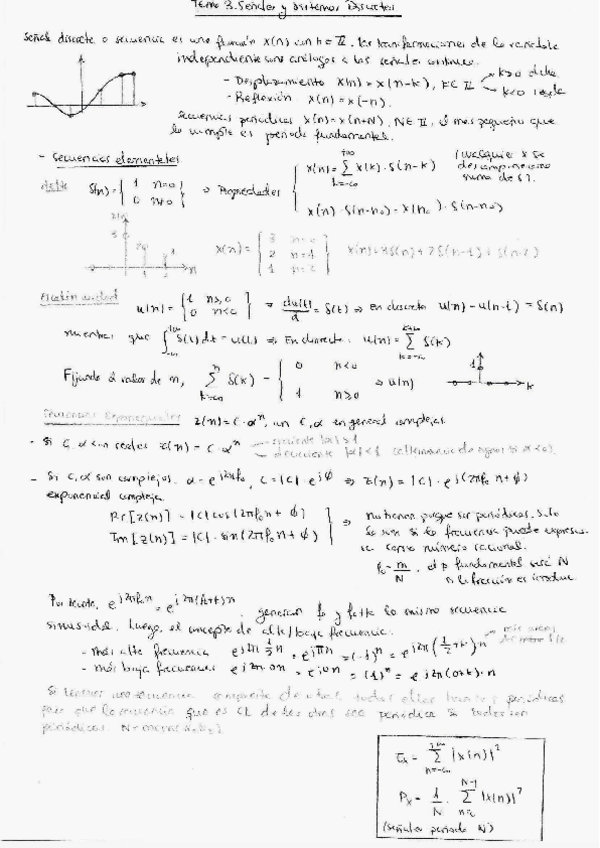 Tema 3. Señales y sistemas Discretos
Señal discreta o secuencia es una función x(n) con n∈ℤ. las transformaciones de la variable
independiente son análogas a las señales continuas.
- Desplazamiento x(n) = x(n-k), k∈ℤ k>0 dcha
k<0 izqda
- Reflexión. x(n) = x(-n).
Secuencias periódicas x(n) = x(n+N). N∈ℤ, el mas pequeño que
lo cumpla es periodo fundamental.
- Secuencias elementales
delta δ(n) = { 1 n=0 ; 0 n≠0 } ⇒ Propiedades { x(n) = Σ x(k)·δ(n-k) (cualquier x se descompone como suma de δ).
x(n)·δ(n-n₀) = x(n₀)·δ(n-n₀)
x(n) = { 3 n=0 ; 2 n=1 ; 1 n=2 x(n)=3δ(n)+2δ(n-1)+δ(n-2)
Escalón unidad u(n) = { 1 n≥0 ; 0 n<0 ⇒ du(t)/d = δ(t) ⇒ En discreta u(n) - u(n-1) = δ(n)
mientras que ∫ δ(t)dt = u(t) ⇒ En discreta: u(n) = Σ δ(k)
Fijando el valor de n, Σ δ(k) = { 0 n<0 ; 1 n≥0 ⇒ u(n)
Secuencias Exponenciales z(n) = C·αⁿ, con C, α en general complejas.
- Si C, α son reales z(n) = C·αⁿ creciente |α|>1
decreciente |α|<1 (alternancia de signo si α<0).
- Si C, α son complejos. α = e^{j2πf₀}, C = |C|·e^{jϕ} ⇒ z(n) = |C|·e^{j(2πf₀n+ϕ)}
exponencial compleja.
Re[z(n)] = |C| cos(2πf₀n + ϕ)
Im[z(n)] = |C|·sin(2πf₀n + ϕ)
⇒ No tienen porque ser periódicas. Solo
lo son si la frecuencia puede expresarse
como número racional.
f₀ = m/N, el p fundamental será N
si la fracción es irreduc
Por tanto, e^{j2πf₀n} = e^{j2π(f₀+k)n}, generan f₀ y f₀+k la misma secuencia
sinusoidal. Luego, el concepto de alta/baja frecuencia.
- más alta frecuencia e^{j2π½n} = e^{jπn} = (-1)ⁿ = e^{j2π(½+k)n}
- más baja frecuencia e^{j2π·0n} = e^{j0n} = (1)ⁿ = e^{j2π(0+k)·n}
Si tenemos una secuencia compuesta de otras, todas ellas periódicas
para que la secuencia que es CL de las otras sea periódica si todas son
periódicas.
Eₓ = Σ |x(n)|²
Pₓ = 1/N · Σ |x(n)|²
(señales periodo N)